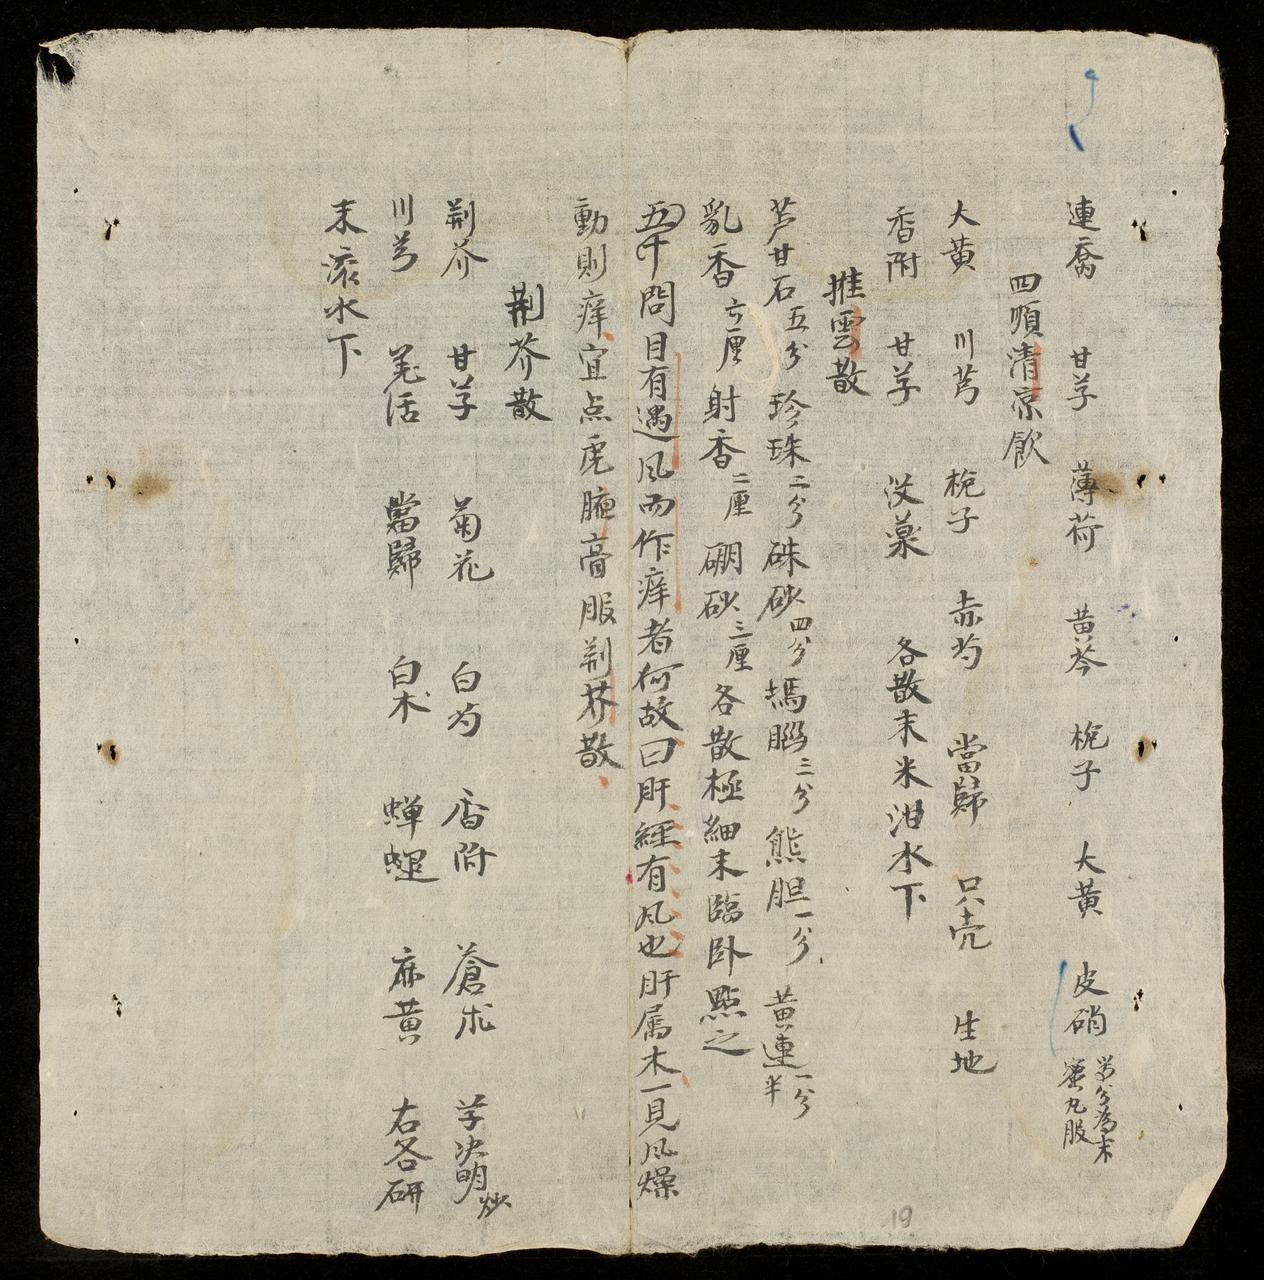 連喬 甘草 薄荷 黄芩 枙子 大黄 皮硝 等分為末蜜丸服
四順清凉飲
大黄 川芎 枙子 赤芍 當歸 只壳 生地
香附 甘草 没藥 各散末米泔水下
推雲散
芦甘石五分 珍珠二分 硃砂四分 瑪腦三分 熊胆一分 黄連一分半
乳香六厘 射香二厘 硼砂三厘 各散極細末臨卧點之
五十問目有遇风而作痒者何故曰肝經有风也肝属木一見风燥
動則痒宜点虎腋膏服荆芥散
荆芥散
荆芥 甘草 菊花 白芍 香附 蒼术 草决明炒
川芎 羌活 當歸 白术 蝉蜕 麻黄 右各研
末滚水下
19